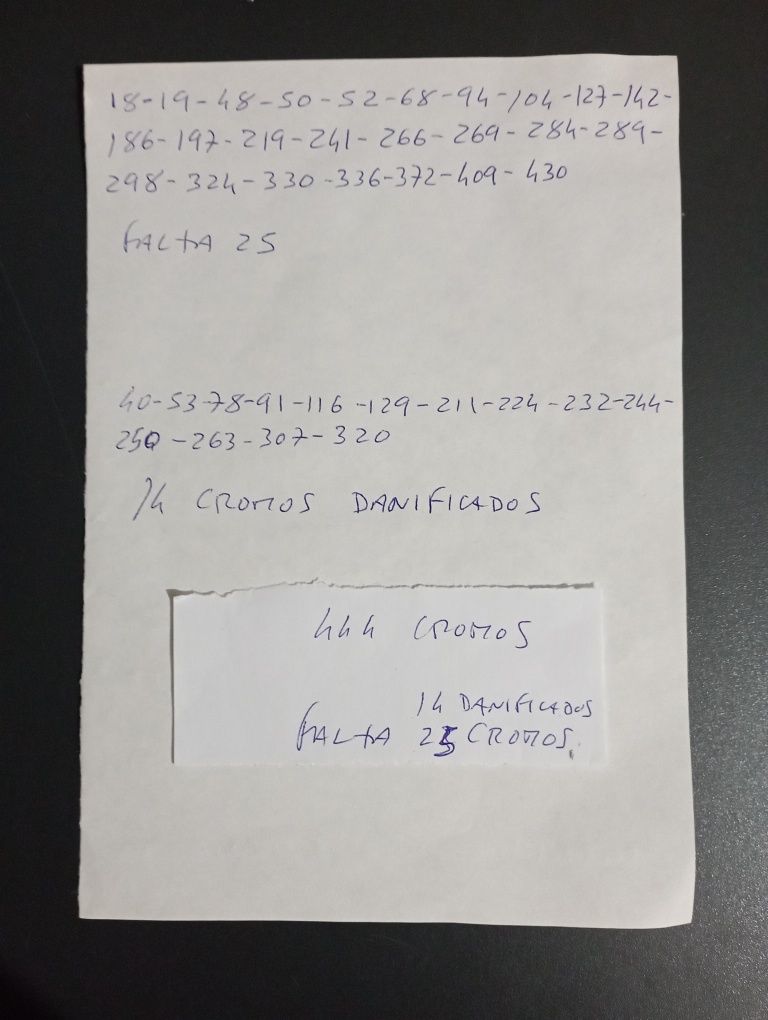 18-19-48-50-52-68-94-104-127-142-
186-197-219-241-266-269-284-289-
298-324-330-336-372-409-430
FALTA 25
40-53-78-91-116-129-211-224-232-244-
250-263-307-320
14 CROMOS DANIFICADOS
444 CROMOS
14 DANIFICADOS
FALTA 25 CROMOS.